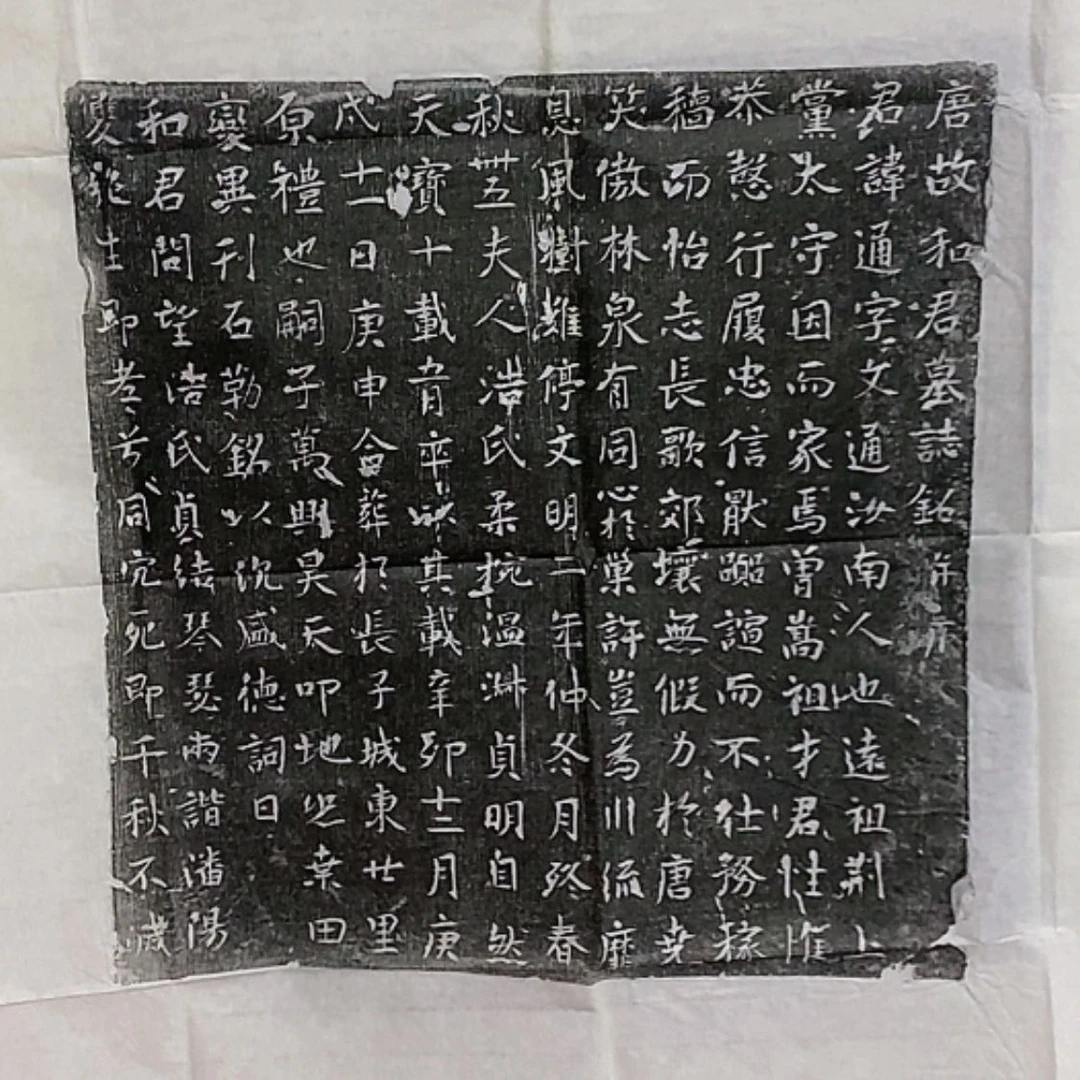 唐故和君墓誌銘并序
君諱通字文通汝南人也遠祖荆上
黨太守因而家焉曾嵩祖才君性惟
恭慤行履忠信厭躁諠而不仕務稼
穡而怡志長歌郊壤無假力於唐堯
笑傲林泉有同心於巢許豈為川流靡
息風樹難停文明二年仲冬月終春
秋卅五夫人浩氏柔婉温淋貞明自然
天寶十載育卒以其載辛卯十二月庚
戍十一日庚申合葬於長子城東廿里
原禮也嗣子萬興昊天叩地恐桒田
變異刊石勒銘以沉盛德詞曰
和君問望浩氏貞結琴瑟兩諧潘陽
雙飛生即孝兮同穴死即千秋不滅